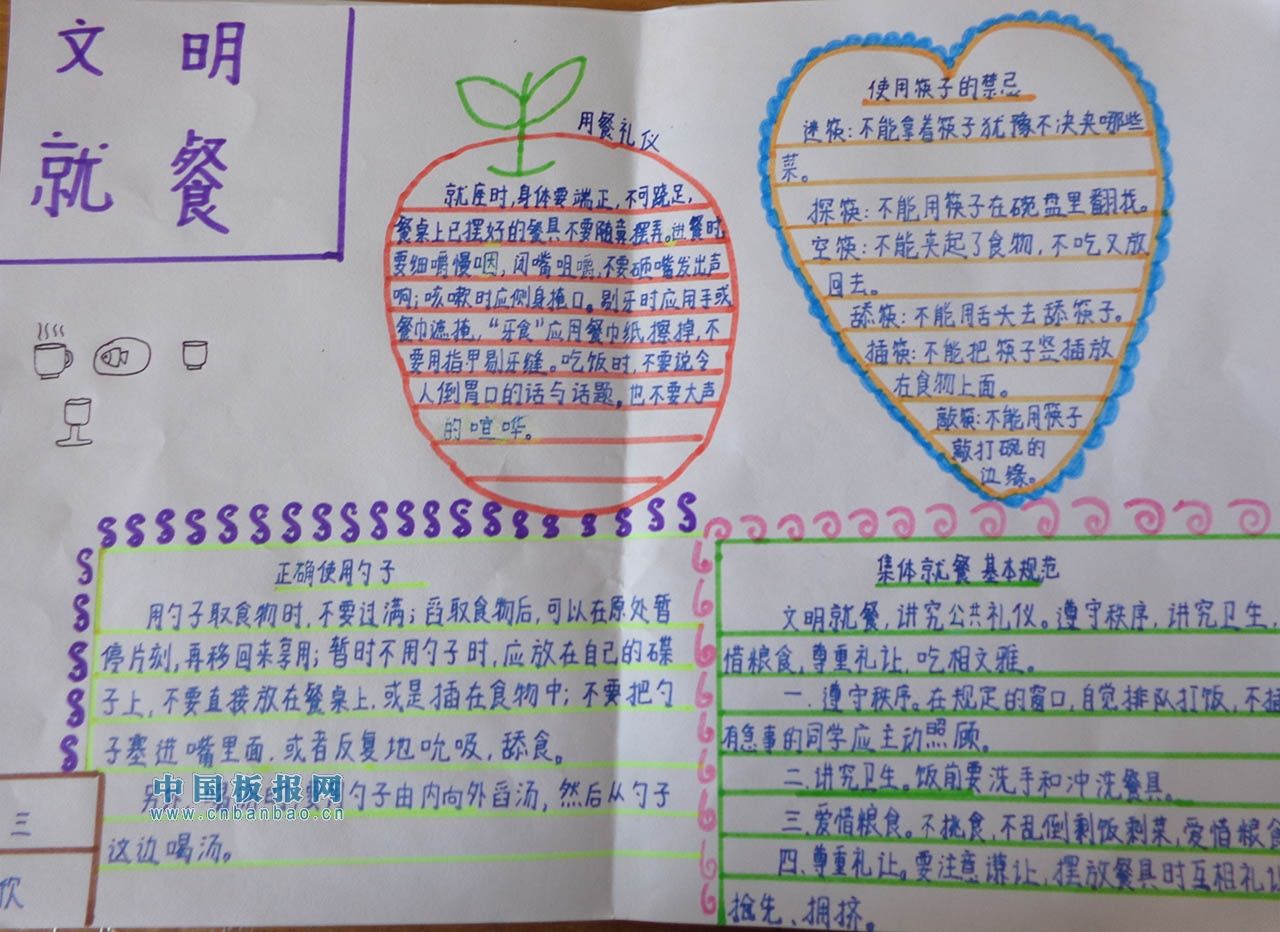 文明
就餐
用餐礼仪
就座时,身体要端正,不可跷足,
餐桌上已摆好的餐具不要随意摆弄。进餐时
要细嚼慢咽,闭嘴咀嚼,不要砸嘴发出声
响;咳嗽时应侧身掩口。剔牙时应用手或
餐巾遮掩,“牙食”应用餐巾纸擦掉,不
要用指甲剔牙缝。吃饭时,不要说令
人倒胃口的话与话题。也不要大声
的喧哗。
使用筷子的禁忌
迷筷:不能拿着筷子犹豫不决夹哪些
菜。
探筷:不能用筷子在碗盘里翻找。
空筷:不能夹起了食物,不吃又放
回去。
舔筷:不能用舌头去舔筷子。
插筷:不能把筷子竖插放
在食物上面。
敲筷:不能用筷子
敲打碗的
边缘。
正确使用勺子
用勺子取食物时,不要过满;舀取食物后,可以在原处暂
停片刻,再移回来享用;暂时不用勺子时,应放在自己的碟
子上,不要直接放在餐桌上,或是插在食物中;不要把勺
子塞进嘴里面,或者反复地吮吸,舔食。
勺子由内向外舀汤,然后从勺子
这边喝汤。
中国板报网
www.cnbanbao.cn
三
欣
集体就餐基本规范
文明就餐,讲究公共礼仪。遵守秩序,讲究卫生,
惜粮食,尊重礼让,吃相文雅。
一.遵守秩序。在规定的窗口,自觉排队打饭,不插
有急事的同学应主动照顾。
二.讲究卫生。饭前要洗手和冲洗餐具。
三.爱惜粮食。不挑食,不乱倒剩饭剩菜,爱惜粮食
四.尊重礼让。要注意谦让,摆放餐具时互相礼让
抢先、拥挤。